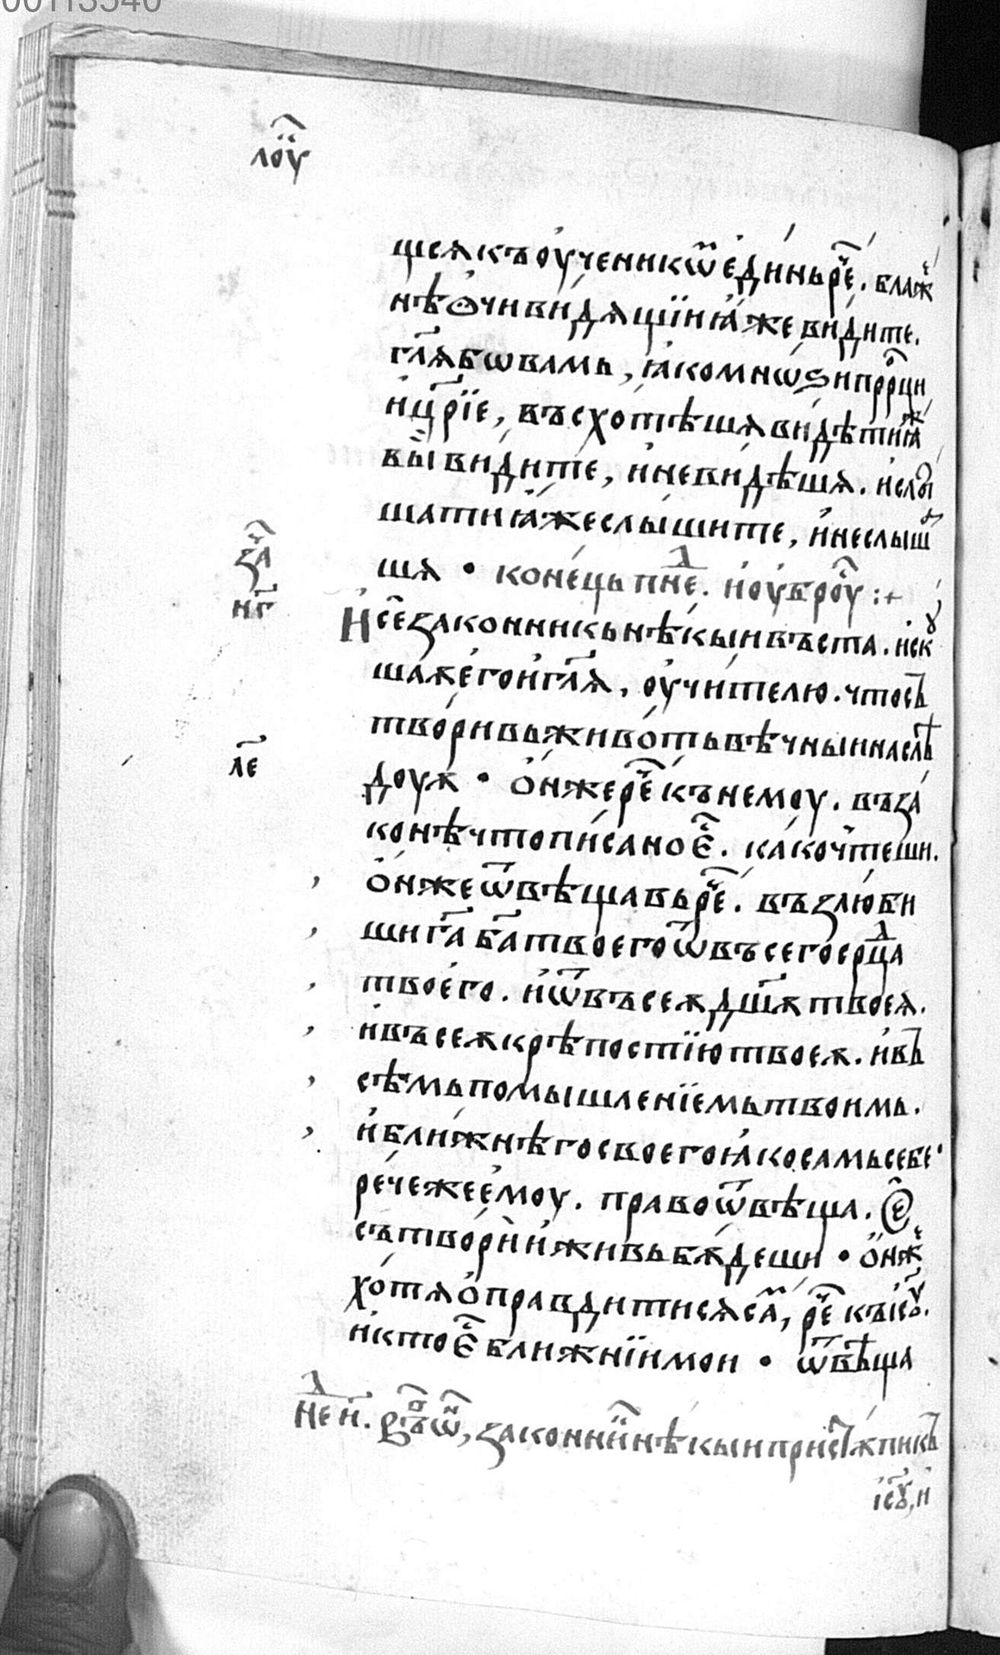 00113540
лоу҆
щеѧ къ оу҆ченикѡ҇м є҆динь рⷱ҇е. блажⷩ҇
нѣ ѻ҆чи видѧщїи ꙗ҆же видите.
гл҃ѧ бѡ вамь, ꙗ҆ко мнѡѕи прⷪ҇рци
и҆ цр҃їе, въсхотѣшѧ видѣти ꙗ҆ⷤ
вы̀ видите, и҆ не видѣшѧ. и҆ слы
шати ꙗ҆же слышите, и҆ не слыш
шѧ • коне́ць пнⷣе. и҆ оу҆брⷪ҇оу :+
заⷱ҇
н҃г
И҆ се҃ законникь нѣкыи въста. и҆скꙋ
шаѫ є҆го и҆ гл҃ѧ, оу҆чителю. что съ
творивь живо́ть вѣчныи наслѣ
ле҃
доуѫ • о҆нже рⷱ҇е къ немоу. въ за
конѣ что писано є҆ⷭ҇. како чтеши.
о҆нже ѿвѣщавь рⷱ҇е. възлюби
ши га҃ ба҃ твоего ѿ въсего срⷣца
твоего. и҆ ѿ въсеѫ дш҃ѫ твоеѧ.
и҆ въсеѫ крѣпостїю твоеѫ. и҆ въ
сѣмь помышленїемь твоимь.
и҆ ближнѣго своего ꙗ҆ко самь себе
рече же є҆моу. право ѿвѣща. се҆
сътвори̏ и҆ живь бѫдеши • о҆нжⷷ
хотѧ ѻ҆правдити сѧ саⷨ, рⷱ҇е къ і҆сꙋ҃.
и҆ кто є҆ⷭ҇ ближнїи мои • ѿвѣща
Неⷣ н҃. въ ѡ҆ⷩ, законникⷩ҇ нѣкыи пристѫпи къ
і҆сꙋ҃, и҆